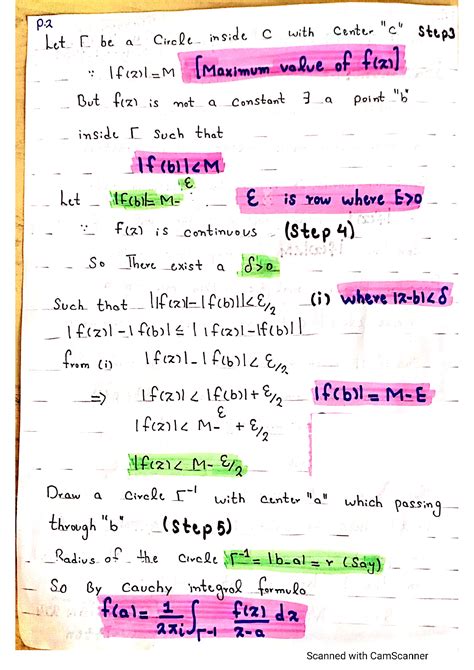 P.2
Let Γ be a Circle inside C with Center "C" Step3
∵ |f(z)|=M [Maximum value of f(z)]
But f(z) is not a constant ∃ a point "b"
inside Γ such that
|f(b)|<M
Let |f(b)|= M-ε ε is row where ε>0
∵ f(z) is continuous (Step 4)
So There exist a δ>0
Such that ||f(z)|-|f(b)||<ε/2 (i) where |z-b|<δ
|f(z)|-|f(b)| ≤ ||f(z)|-|f(b)||
from (i) |f(z)|-|f(b)|< ε/2
⇒ |f(z)|< |f(b)|+ε/2 |f(b)| = M-ε
|f(z)|< M-ε + ε/2
|f(z)|< M- ε/2
Draw a circle Γ⁻¹ with center "a" which passing
through "b" (Step 5)
Radius of the circle Γ⁻¹= |b-a|= r (Say)
So By Cauchy integral formula
f(a)= 1/2πi ∫Γ-1 f(z)/z-a dz
Scanned with CamScanner